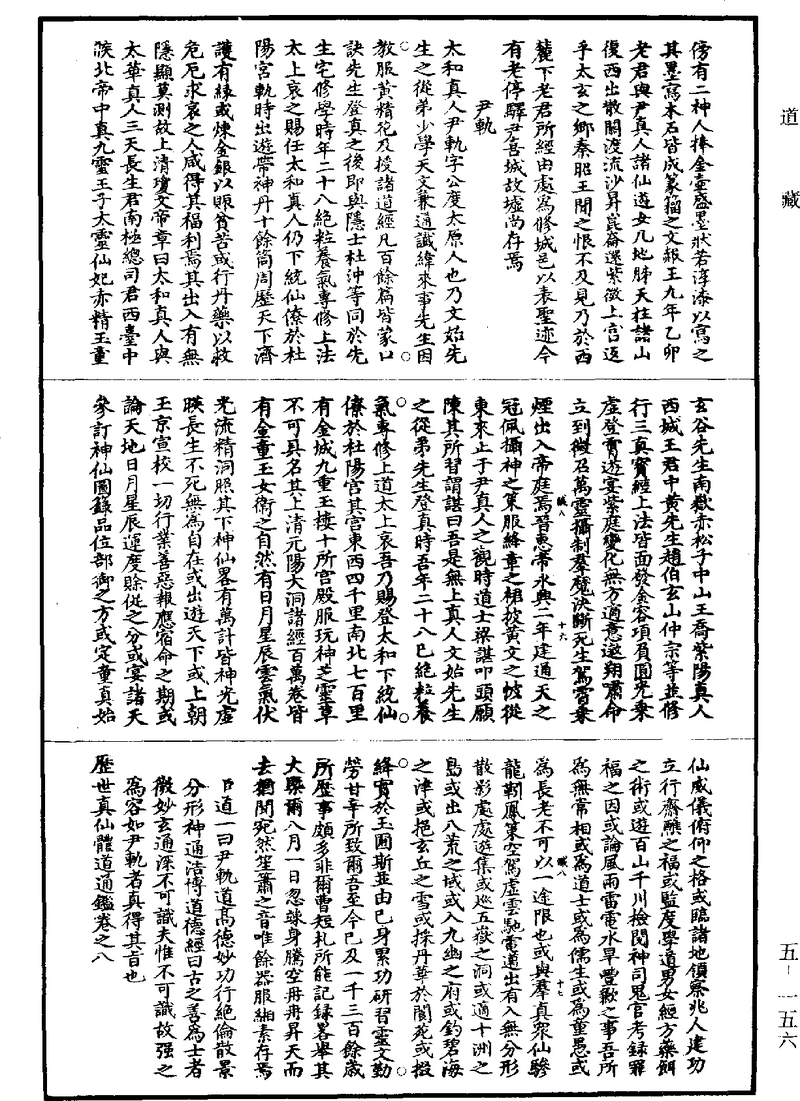 道藏
傍有二神人捧金壺盛墨狀若淳漆以寫之
其墨寫木石皆成篆籀之文報王九年乙卯
老君與尹真人諸仙遊女几地肺天柱諸山
復西出散關渡流沙昇崑崙還紫微上宮返
乎太玄之鄉秦昭王聞之恨不及見乃於西
麓下老君所經由處為修城邑以表聖迹今
有老停驛尹喜城故墟尚存焉
尹軌
太和真人尹軌字公度太原人也乃文始先
生之從弟少學天文兼通讖緯來事先生因
教服黃精花及授諸道經凡百餘篇皆蒙口
訣先生登真之後即與隱士杜沖等同於先
生宅修學時年二十八絕粒養氣專修上法
太上哀之賜任太和真人仍下統仙僚於杜
陽宮軌時出遊帶神丹十餘筒周歷天下濟
護有緣或煉金銀以賑貧苦或行丹藥以救
危厄求哀之人咸得其福利焉其出入有無
隱顯莫測故上清瓊文帝章曰太和真人與
太華真人三天長生君南極總司君西臺中
候北帝中真九靈王子大靈仙妃赤精玉童
玄谷先生南嶽赤松子中山王喬紫陽真人
西城王君中黃先生趙伯玄山仲宗等並修
行三真寶經上法皆面發金容項負圓光乘
虛登霄遊宴紫庭變化無方適意遨翔嘯命
立到徵召萬靈攝制羣魔決斷死生駕霄乘
煙出入帝庭焉晉惠帝永興二年建通天之
冠佩攝神之策服絳章之裙披黃文之帔從
東來止于尹真人之觀時道士梁諶叩頭願
陳其所習謂諶曰吾是無上真人文始先生
之從弟先生登真時吾年二十八已絕粒養
氣專修上道太上哀吾乃賜登太和下統仙
僚於杜陽宮其宮東西四千里南北七百里
有金城九重玉樓十所宮殿服玩神芝靈草
不可具名其上清元陽大洞諸經百萬卷皆
有金童玉女衛之自然有日月星辰雲氣伏
光流精洞照其下神仙畧有萬計皆神光虛
暎長生不死無為自在或出遊天下或上朝
玉京宣校一切行業善惡報應宿命之期或
論天地日月星辰運度賒促之分或宴諸天
參訂神仙圖籙品位部御之方或定童真始
仙威儀俯仰之格或臨諸地領察兆人建功
立行齋醮之福或監度學道男女經方藥餌
之術或遊百山千川檢閱神司鬼官考錄罪
福之因或論風雨雷電水旱豐歉之事吾所
為無常相或為道士或為儒生或為童愚或
為長老不可以一途限也或與羣真眾仙驂
龍馭鳳策空駕虛雲馳電邁出有入無分形
散影處處遊集或巡五嶽之洞或適十洲之
島或出八荒之域或入九幽之府或釣碧海
之津或挹玄丘之雪或採丹華於閬苑或掇
絳實於玉圃斯並由已身累功研習靈文勤
勞甘辛所致爾吾至今已及一千三百餘歲
所歷事頗多非爾曹短札所能記錄畧舉其
大槩爾八月一日忽竦身騰空冉冉昇天而
去猶聞宛然笙簫之音唯餘器服緗素存焉
臣道一曰尹軌道高德妙功行絕倫散景
分形神通浩博道德經曰古之善為士者
微妙玄通深不可識夫惟不可識故強之
為容如尹軌者真得其旨也
歷世真仙體道通鑑卷之八
鹹八
十六
鹹八
十七
五—一五六